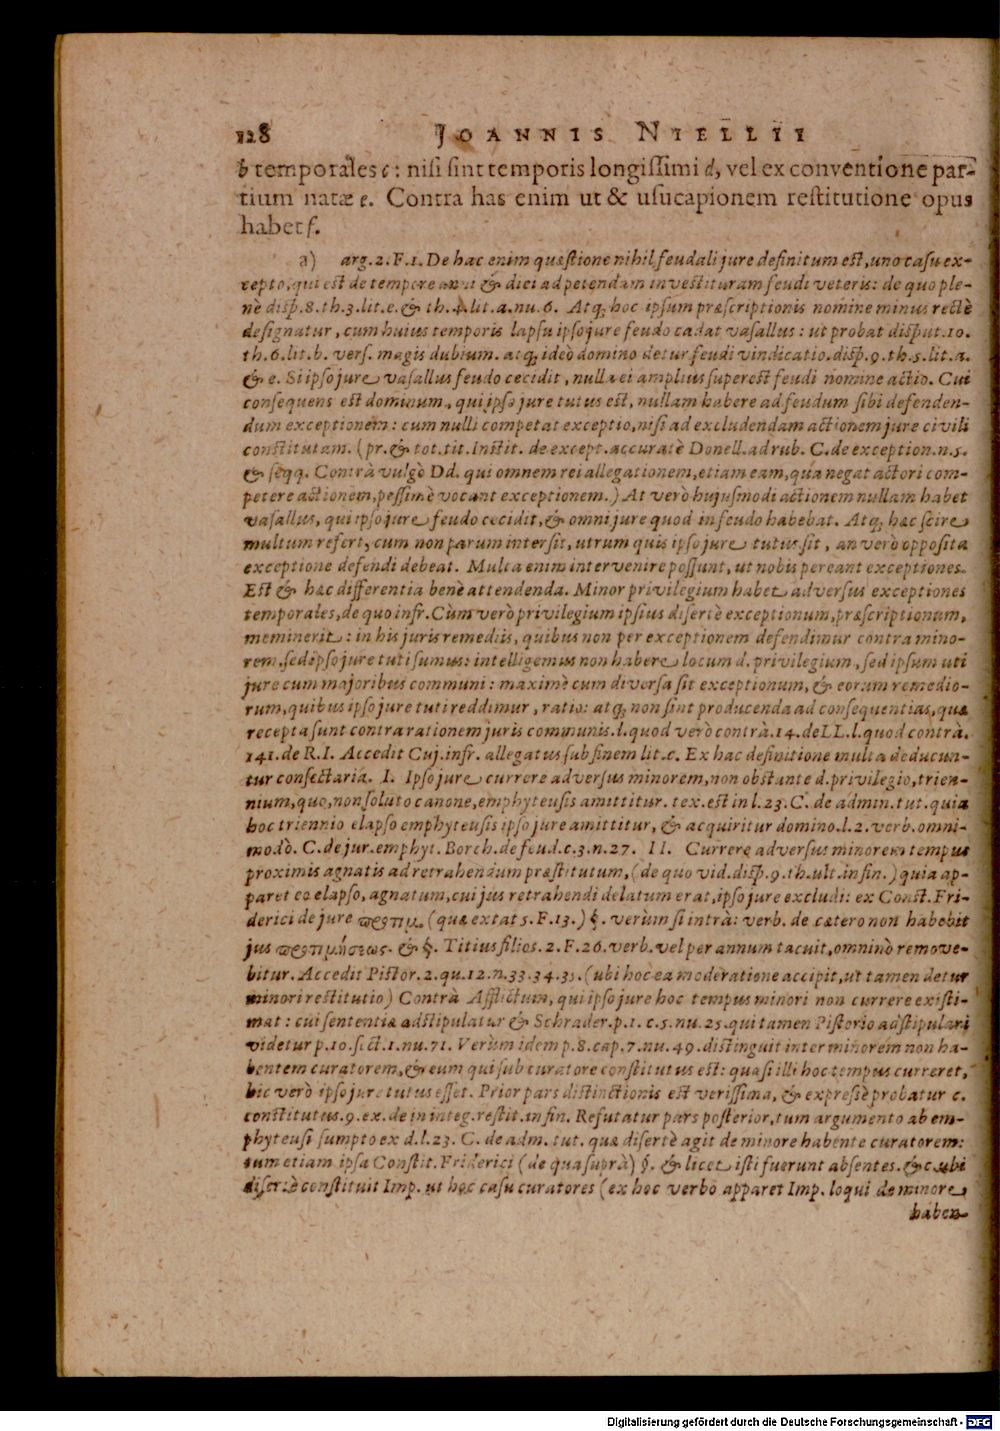 128 JOANNIS NIELLII
b temporales c: nisi sint temporis longissimi d, vel ex conventione par-
tium natæ e. Contra has enim ut & usucapionem restitutione opus
habet f.
a) arg. 2. F. 1. De hac enim quæstione nihil feudali jure definitum est, uno casu ex-
cepto, qui est de tempore anni & diei ad petendam investituram feudi veteris: de quo ple-
nè disp. 8. th. 3. lit. e. & th. 4. lit. a. nu. 6. Atq; hoc ipsum præscriptionis nomine minus rectè
designatur, cum huius temporis lapsu ipso jure feudo cadat vasallus: ut probat disput. 10.
th. 6. lit. b. vers. magis dubium. atq; ideò domino detur feudi vindicatio. disp. 9. th. 5. lit. a.
& e. Si ipso jure vasallus feudo cecidit, nulla ei amplius superest feudi nomine actio. Cui
consequens est dominum, qui ipso jure tutus est, nullam habere ad feudum sibi defenden-
dum exceptionem: cum nulli competat exceptio, nisi ad excludendam actionem jure civili
constitutam. (pr. & tot. tit. Instit. de except. accuratè Donell. ad rub. C. de exception. n. 5.
& seqq. Contrà vulgò Dd. qui omnem rei allegationem, etiam eam, qua negat actori com-
petere actionem, pessimè vocant exceptionem.) At verò hujusmodi actionem nullam habet
vasallus, qui ipso jure feudo cecidit, & omni jure quod in feudo habebat. Atq; hæc scire
multum refert, cum non parum intersit, utrum quis ipso jure tutus sit, an verò opposita
exceptione defendi debeat. Multa enim intervenire possunt, ut nobis pereant exceptiones.
Est & hæc differentia benè attendenda. Minor privilegium habet adversus exceptiones
temporales, de quo infr. Cùm verò privilegium ipsius disertè exceptionum, præscriptionum,
meminerit: in his juris remediis, quibus non per exceptionem defendimur contra mino-
rem, sed ipso jure tuti sumus: intelligemus non habere locum d. privilegium, sed ipsum uti
jure cum majoribus communi: maximè cum diversa sit exceptionum, & eorum remedio-
rum, quibus ipso jure tuti reddimur, ratio: atq; non sint producenda ad consequentias, quæ
recepta sunt contra rationem juris communis. l. quod verò contrà. 14. de LL. l. quod contrà.
141. de R. I. Accedit Cuj. infr. allegatus sub finem lit. c. Ex hac definitione multa deducun-
tur consectaria. I. Ipso jure currere adversus minorem, non obstante d. privilegio, trien-
nium, quo, non soluto canone, emphyteusis amittitur. tex. est in l. 23. C. de admin. tut. quia
hoc triennio elapso emphyteusis ipso jure amittitur, & acquiritur domino. l. 2. verb. omni-
modò. C. de jur. emphyt. Borch. de feud. c. 3. n. 27. II. Currere adversus minorem tempus
proximis agnatis ad retrahendum præstitutum, (de quo vid. disp. 9. th. ult. in fin.) quia ap-
paret eo elapso, agnatum, cui jus retrahendi delatum erat, ipso jure excludi: ex Const. Fri-
derici de jure προτιμ. (quæ extat 5. F. 13.) §. verùm si intrà: verb. de cætero non habebit
jus προτιμήσεως. & §. Titius filios. 2. F. 26. verb. vel per annum tacuit, omninò remove-
bitur. Accedit Pistor. 2. qu. 12. n. 33. 34. 35. (ubi hoc ea moderatione accipit, ut tamen detur
minori restitutio) Contrà Afflictum, qui ipso jure hoc tempus minori non currere existi-
mat: cui sententiæ adstipulatur & Schrader. p. 1. c. 5. nu. 25. qui tamen Pistorio adstipulari
videtur p. 10. sect. 1. nu. 71. Verùm idem p. 8. cap. 7. nu. 49. distinguit inter minorem non ha-
bentem curatorem, & eum qui sub curatore constitutus est: quasi illi hoc tempus curreret,
hic verò ipso jure tutus esset. Prior pars distinctionis est verissima, & expressè probatur c.
constitutus. 9. ex. de in integ. restit. in fin. Refutatur pars posterior, tum argumento ab em-
phyteusi sumpto ex d. l. 23. C. de adm. tut. quæ disertè agit de minore habente curatorem:
tum etiam ipsa Constit. Friderici (de qua suprà) §. & licet isti fuerunt absentes. & c. ubi
disertè constituit Imp. ut hoc casu curatores (ex hoc verbo apparet Imp. loqui de minore
haben-
Digitalisierung gefördert durch die Deutsche Forschungsgemeinschaft - DFG